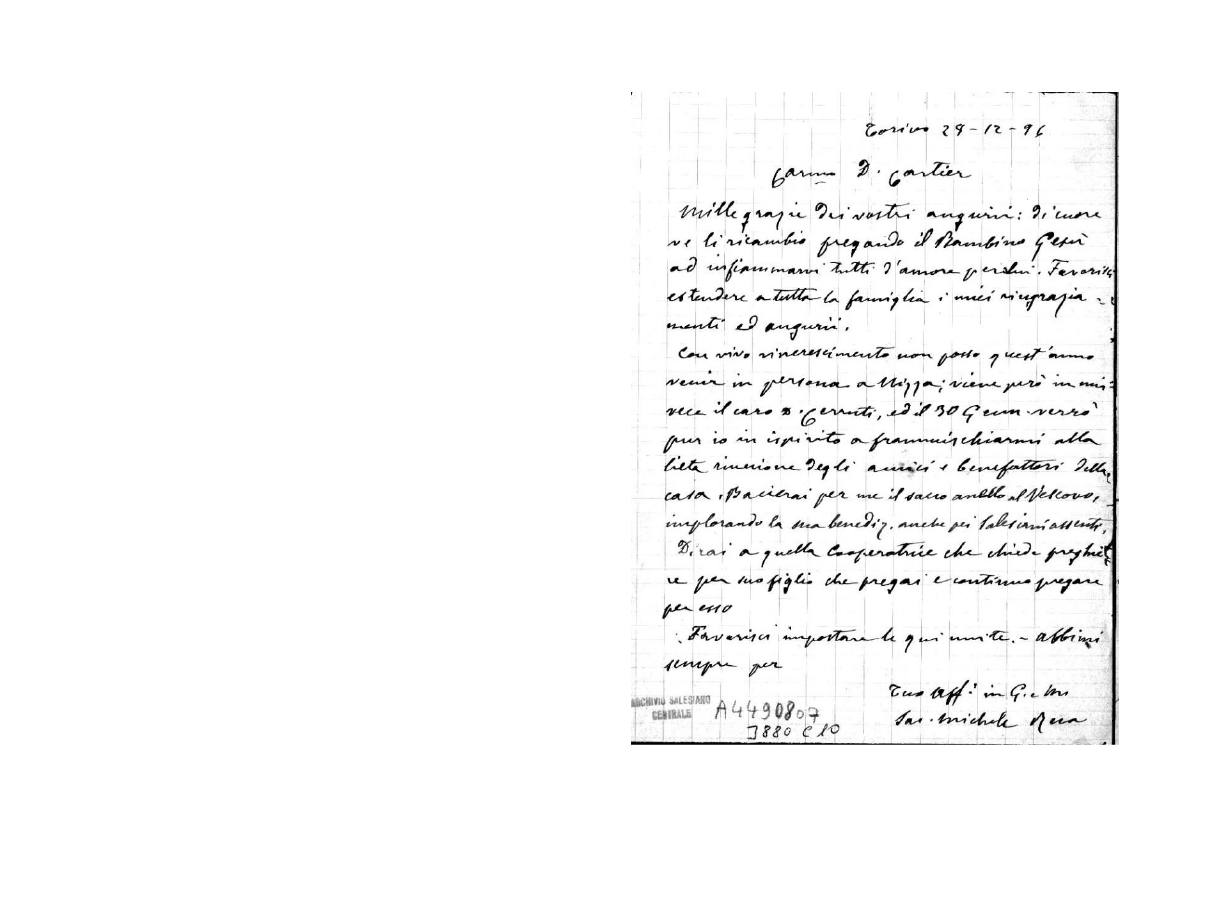 Torino 28-12-96
Carmo D. Cartier
Mille grazie dei vostri augurii: di cuore
ve li ricambio pregando il Bambino Gesù
ad infiammarvi tutti d'amore per lui. Favorisci
estendere a tutta la famiglia i miei ringrazia-
menti ed augurii.
Con vivo rincrescimento non posso quest'anno
venir in persona a Nizza; viene però in mia
vece il caro D. Cerruti, ed il 30 Genn. verrò
pur io in ispirito a frammischiarmi alla
lieta riunione degli amici e benefattori della
casa. Bacierai per me il sacro anello al Vescovo,
implorando la sua benediz. anche pei Salesiani assenti.
Dirai a quella Cooperatrice che chiede preghie
re per suo figlio che pregai e continuo pregare
per esso
Favorisci impostare le qui unite. - Abbimi
sempre per
Tuo aff. in G. e M.
Sac. Michele Rua
ARCHIVIO SALESIANO
CENTRALE
A4490807
3880 C10